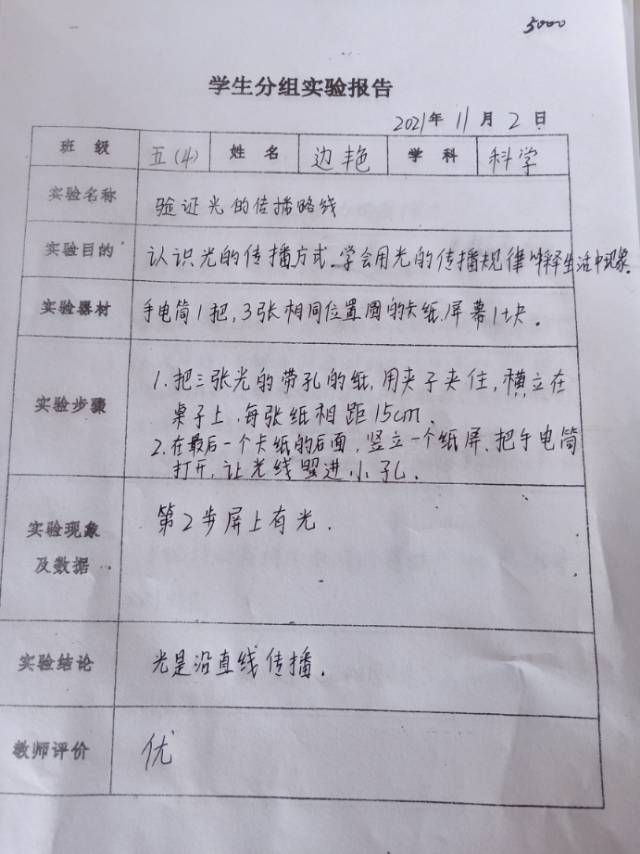 5000
学生分组实验报告
2021年11月2日
班级 五(4) 姓名 边艳 学科 科学
实验名称 验证光的传播路线
实验目的 认识光的传播方式.学会用光的传播规律解释生活中现象.
实验器材 手电筒1把,3张相同位置圆的卡纸.屏幕1块。
实验步骤 1.把三张光的带孔的纸,用夹子夹住,横立在
桌子上.每张纸相距15cm.
2.在最后一个卡纸的后面,竖立一个纸屏.把手电筒
打开,让光线照进小孔.
实验现象 第2步屏上有光.
及数据
实验结论 光是沿直线传播.
教师评价 优